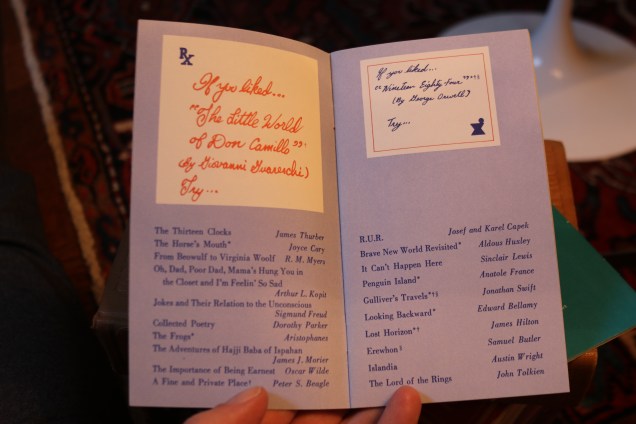 Rx
If you liked...
"The Little World
of Don Camillo"
(By Giovanni Guareschi)
Try...
The Thirteen Clocks James Thurber
The Horse's Mouth* Joyce Cary
From Beowulf to Virginia Woolf R. M. Myers
Oh, Dad, Poor Dad, Mama's Hung You in
the Closet and I'm Feelin' So Sad
Arthur L. Kopit
Jokes and Their Relation to the Unconscious
Sigmund Freud
Collected Poetry Dorothy Parker
The Frogs* Aristophanes
The Adventures of Hajji Baba of Ispahan
James J. Morier
The Importance of Being Earnest Oscar Wilde
A Fine and Private Place† Peter S. Beagle
If you liked...
"Nineteen Eighty Four"*†§
(By George Orwell)
Try...
R.U.R. Josef and Karel Capek
Brave New World Revisited* Aldous Huxley
It Can't Happen Here Sinclair Lewis
Penguin Island* Anatole France
Gulliver's Travels*†§ Jonathan Swift
Looking Backward* Edward Bellamy
Lost Horizon*† James Hilton
Erewhon§ Samuel Butler
Islandia Austin Wright
The Lord of the Rings John Tolkien